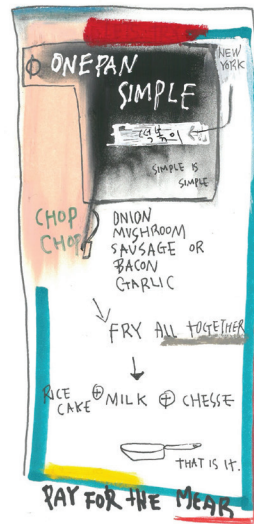 ONEPAN
SIMPLE
NEW
YORK
떡볶이
SIMPLE IS
SIMPLE
CHOP
CHOP
ONION
MUSHROOM
SAUSAGE OR
BACON
GARLIC
FRY ALL TOGETHER
RICE
CAKE ⊕ MILK ⊕ CHESSE
THAT IS IT.
PAY FOR THE MEAR